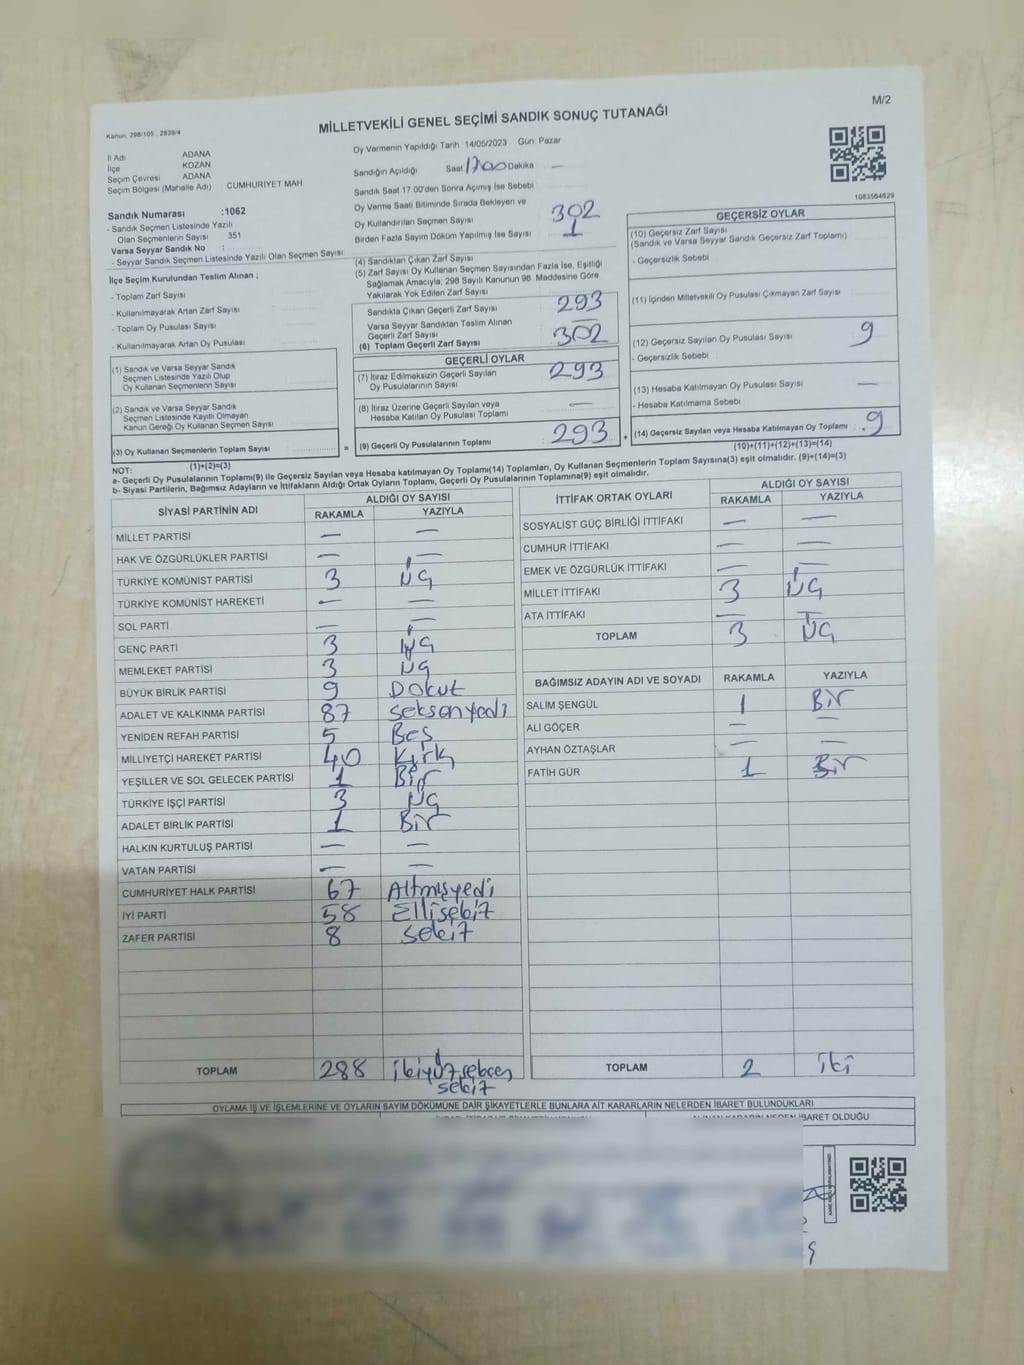 M/2
Kanun, 298/105 , 2839/4
MİLLETVEKİLİ GENEL SEÇİMİ SANDIK SONUÇ TUTANAĞI
İl Adı ADANA
İlçe KOZAN
Seçim Çevresi ADANA
Seçim Bölgesi (Mahalle Adı) CUMHURİYET MAH.
Sandık Numarası :1062
- Sandık Seçmen Listesinde Yazılı
Olan Seçmenlerin Sayısı : 351
Varsa Seyyar Sandık No :
- Seyyar Sandık Seçmen Listesinde Yazılı Olan Seçmen Sayısı
İlçe Seçim Kurulundan Teslim Alınan ;
- Toplam Zarf Sayısı
- Kullanılmayarak Artan Zarf Sayısı
- Toplam Oy Pusulası Sayısı
- Kullanılmayarak Artan Oy Pusulası
(1) Sandık ve Varsa Seyyar Sandık
Seçmen Listesinde Yazılı Olup
Oy Kullanan Seçmenlerin Sayısı
(2) Sandık ve Varsa Seyyar Sandık
Seçmen Listesinde Kayıtlı Olmayan
Kanun Gereği Oy Kullanan Seçmen Sayısı
(3) Oy Kullanan Seçmenlerin Toplam Sayısı =
(1)+(2)=(3)
Oy Vermenin Yapıldığı Tarih :14/05/2023 Gün: Pazar
Sandığın Açıldığı Saat 17.00 Dakika —
Sandık Saat 17.00'den Sonra Açılmış İse Sebebi :
Oy Verme Saati Bitiminde Sırada Bekleyen ve
Oy Kullandırılan Seçmen Sayısı 302
Birden Fazla Sayım Döküm Yapılmış İse Sayısı 1
(4) Sandıktan Çıkan Zarf Sayısı
(5) Zarf Sayısı Oy Kullanan Seçmen Sayısından Fazla İse, Eşitliği
Sağlamak Amacıyla, 298 Sayılı Kanunun 98. Maddesine Göre
Yakılarak Yok Edilen Zarf Sayısı
Sandıkta Çıkan Geçerli Zarf Sayısı 293
Varsa Seyyar Sandıktan Teslim Alınan
Geçerli Zarf Sayısı —
(6) Toplam Geçerli Zarf Sayısı 302
GEÇERLİ OYLAR
(7) İtiraz Edilmeksizin Geçerli Sayılan
Oy Pusulalarının Sayısı 293
(8) İtiraz Üzerine Geçerli Sayılan veya
Hesaba Katılan Oy Pusulası Toplamı —
(9) Geçerli Oy Pusulalarının Toplamı 293 +
1083564629
GEÇERSİZ OYLAR
(10) Geçersiz Zarf Sayısı
(Sandık ve Varsa Seyyar Sandık Geçersiz Zarf Toplamı)
- Geçersizlik Sebebi
(11) İçinden Milletvekili Oy Pusulası Çıkmayan Zarf Sayısı
(12) Geçersiz Sayılan Oy Pusulası Sayısı 9
- Geçersizlik Sebebi :
(13) Hesaba Katılmayan Oy Pusulası Sayısı —
- Hesaba Katılmama Sebebi :
(14) Geçersiz Sayılan veya Hesaba Katılmayan Oy Toplamı : 9
(10)+(11)+(12)+(13)=(14)
NOT:
a- Geçerli Oy Pusulalarının Toplamı(9) ile Geçersiz Sayılan veya Hesaba katılmayan Oy Toplamı(14) Toplamları, Oy Kullanan Seçmenlerin Toplam Sayısına(3) eşit olmalıdır. (9)+(14)=(3)
b- Siyasi Partilerin, Bağımsız Adayların ve İttifakların Aldığı Ortak Oyların Toplamı, Geçerli Oy Pusulalarının Toplamına(9) eşit olmalıdır.
SİYASİ PARTİNİN ADI ALDIĞI OY SAYISI
RAKAMLA YAZIYLA
MİLLET PARTİSİ — —
HAK VE ÖZGÜRLÜKLER PARTİSİ — —
TÜRKİYE KOMÜNİST PARTİSİ 3 Üç
TÜRKİYE KOMÜNİST HAREKETİ — —
SOL PARTİ — —
GENÇ PARTİ 3 Üç
MEMLEKET PARTİSİ 3 Üç
BÜYÜK BİRLİK PARTİSİ 9 Dokuz
ADALET VE KALKINMA PARTİSİ 87 Seksenyedi
YENİDEN REFAH PARTİSİ 5 Beş
MİLLİYETÇİ HAREKET PARTİSİ 40 Kırk
YEŞİLLER VE SOL GELECEK PARTİSİ 1 Bir
TÜRKİYE İŞÇİ PARTİSİ 3 Üç
ADALET BİRLİK PARTİSİ 1 Bir
HALKIN KURTULUŞ PARTİSİ — —
VATAN PARTİSİ — —
CUMHURİYET HALK PARTİSİ 67 Altmışyedi
İYİ PARTİ 58 Ellisekiz
ZAFER PARTİSİ 8 Sekiz
TOPLAM 288 ikiyüzseksen
sekiz
İTTİFAK ORTAK OYLARI ALDIĞI OY SAYISI
RAKAMLA YAZIYLA
SOSYALİST GÜÇ BİRLİĞİ İTTİFAKI — —
CUMHUR İTTİFAKI — —
EMEK VE ÖZGÜRLÜK İTTİFAKI — —
MİLLET İTTİFAKI 3 Üç
ATA İTTİFAKI — —
TOPLAM 3 Üç
BAĞIMSIZ ADAYIN ADI VE SOYADI RAKAMLA YAZIYLA
SALİM ŞENGÜL 1 Bir
ALİ GÖÇER — —
AYHAN ÖZTAŞLAR — —
FATİH GÜR 1 Bir
TOPLAM 2 iki
OYLAMA İŞ VE İŞLEMLERİNE VE OYLARIN SAYIM DÖKÜMÜNE DAİR ŞİKAYETLERLE BUNLARA AİT KARARLARIN NELERDEN İBARET BULUNDUKLARI
ALINAN KARARIN NEDEN İBARET OLDUĞU